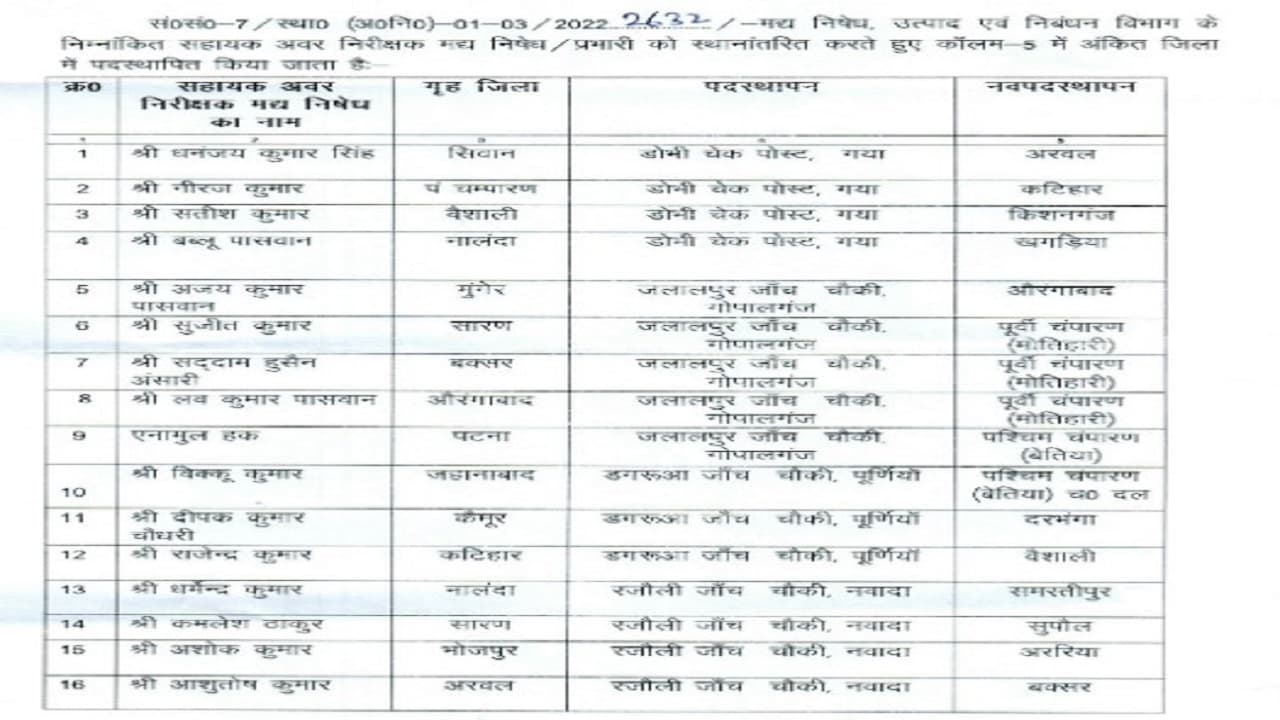 सं०सं०-7/स्था० (अ०नि०)-01-03/2022 2632 /-मद्य निषेध, उत्पाद एवं निबंधन विभाग के
निम्नांकित सहायक अवर निरीक्षक मद्य निषेध/प्रभारी को स्थानांतरित करते हुए कॉलम-5 में अंकित जिला
में पदस्थापित किया जाता है:-
क्र० सहायक अवर निरीक्षक मद्य निषेध का नाम गृह जिला पदस्थापन नवपदस्थापन
1 श्री धनंजय कुमार सिंह सिवान डोभी चेक पोस्ट, गया अरवल
2 श्री नीरज कुमार पं चम्पारण डोभी चेक पोस्ट, गया कटिहार
3 श्री सतीश कुमार वैशाली डोभी चेक पोस्ट, गया किशनगंज
4 श्री बब्लू पासवान नालंदा डोभी चेक पोस्ट, गया खगड़िया
5 श्री अजय कुमार पासवान मुंगेर जलालपुर जाँच चौकी, गोपालगंज औरंगाबाद
6 श्री सुजीत कुमार सारण जलालपुर जाँच चौकी, गोपालगंज पूर्वी चंपारण (मोतिहारी)
7 श्री सद्दाम हुसैन अंसारी बक्सर जलालपुर जाँच चौकी, गोपालगंज पूर्वी चंपारण (मोतिहारी)
8 श्री लव कुमार पासवान औरंगाबाद जलालपुर जाँच चौकी, गोपालगंज पूर्वी चंपारण (मोतिहारी)
9 एनामुल हक पटना जलालपुर जाँच चौकी, गोपालगंज पश्चिम चंपारण (बेतिया)
10 श्री विक्कू कुमार जहानाबाद डगरूआ जाँच चौकी, पूर्णियाँ पश्चिम चंपारण (बेतिया) च० दल
11 श्री दीपक कुमार चौधरी कैमूर डगरूआ जाँच चौकी, पूर्णियाँ दरभंगा
12 श्री राजेन्द्र कुमार कटिहार डगरूआ जाँच चौकी, पूर्णियाँ वैशाली
13 श्री धर्मेन्द्र कुमार नालंदा रजौली जाँच चौकी, नवादा समस्तीपुर
14 श्री कमलेश ठाकुर सारण रजौली जाँच चौकी, नवादा सुपौल
15 श्री अशोक कुमार भोजपुर रजौली जाँच चौकी, नवादा अररिया
16 श्री आशुतोष कुमार अरवल रजौली जाँच चौकी, नवादा बक्सर